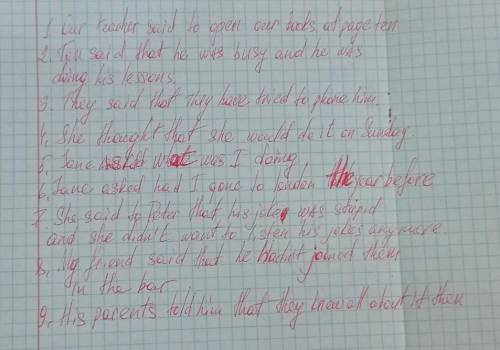 1. Our teacher said to open our books at page ten
2. Tim said that he was busy and he was
doing his lessons.
3. They said that they have tried to phone him.
4. She thought that she would do it on Sunday.
5. Jane asked wat was I doing
6. Jane asked had I gone to london the year before
7. She said to Peter that his joke was stupid
and she didn't want to listen his jokes any more
8. My friend said that he hadn't joined them
in the bar
9. His parents told him that they know all about it then